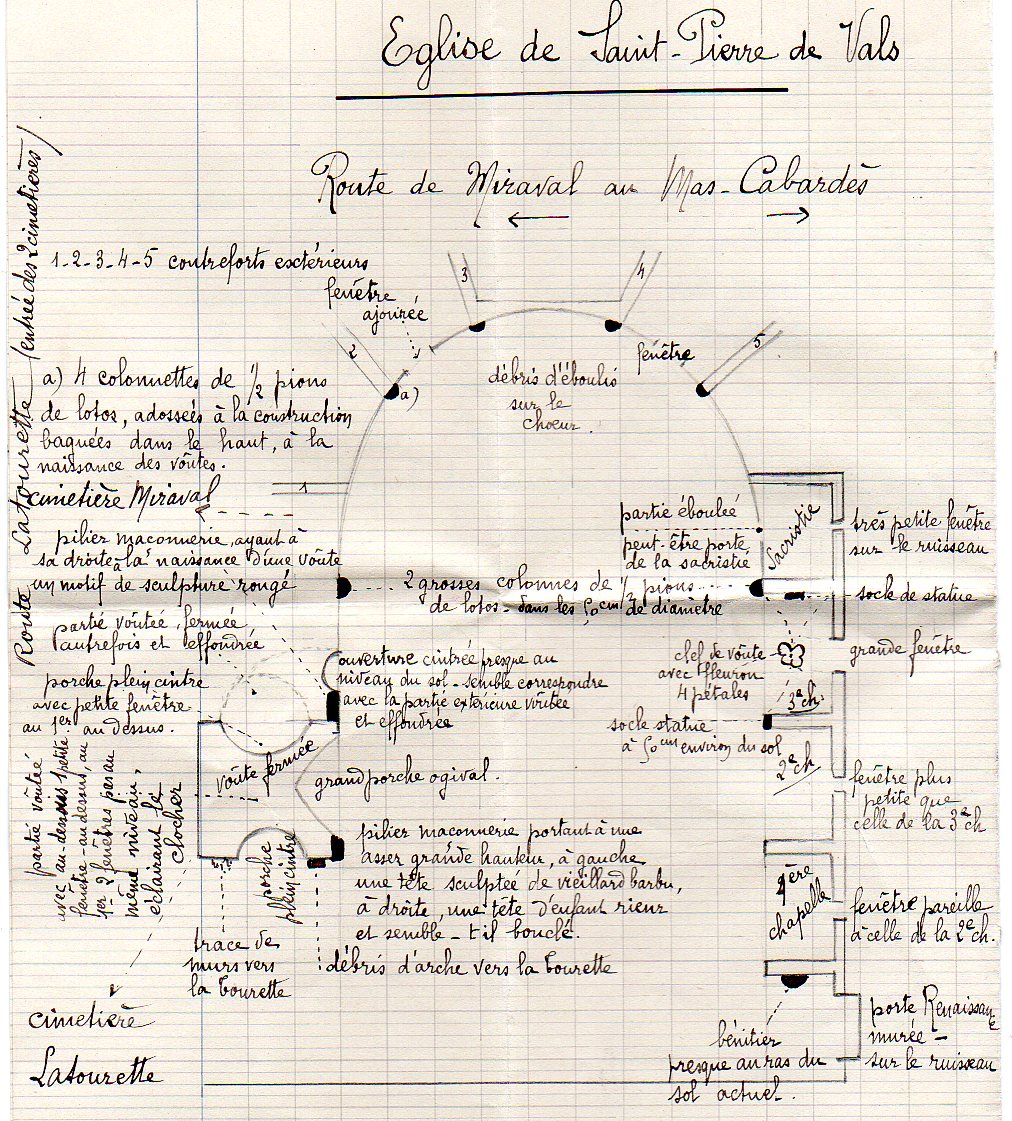 Eglise de Saint-Pierre de Vals
Route de Miraval au Mas-Cabardès
Route Latourette (entrée des 2 cimetières)
1-2-3-4-5 contreforts extérieurs
fenêtre
ajourée
3
4
2
5
1
a)
fenêtre
débris d'éboulis
sur le
choeur.
a) 4 colonnettes de 1/2 pions
de lotos, adossées à la construction
baguées dans le haut, à la
naissance des voûtes.
cimetière Miraval
pilier maconnerie, ayant à
sa droite à la naissance d'une voûte
un motif de sculpture rongé
partie voûtée, fermée
autrefois et effondrée
porche plein cintre
avec petite fenêtre
au 1er au dessus.
partie voûtée
avec au-dessous 1 petite
fenêtre au dessus, au
1er 2 fenêtres pas au
même niveau,
éclairant le
clocher
partie éboulée
peut-être porte
de la sacristie
Sacristie
très petite fenêtre
sur le ruisseau
2 grosses colonnes de 1/2 pions
de lotos - dans les 50cm 1/2 de diamètre
socle de statue
grande fenêtre
clef de voûte
avec fleuron
4 pétales
3e ch.
ouverture cintrée presque au
niveau du sol - semble correspondre
avec la partie extérieure voûtée
et effondrée
socle statue
à 50cm environ du sol
2e ch.
voûte fermée
grand porche ogival.
fenêtre plus
petite que
celle de la 3e ch
porche
plein cintre
pilier maconnerie portant à une
assez grande hauteur, à gauche
une tête sculptée de vieillard barbu,
à droite, une tête d'enfant rieur
et semble-t-il bouclé.
1ère
chapelle
fenêtre pareille
à celle de la 2e ch.
trace de
murs vers
la Tourette
débris d'arche vers la Tourette
cimetière
Latourette
bénitier
presque au ras du
sol actuel.
porte Renaissance
murée -
sur le ruisseau